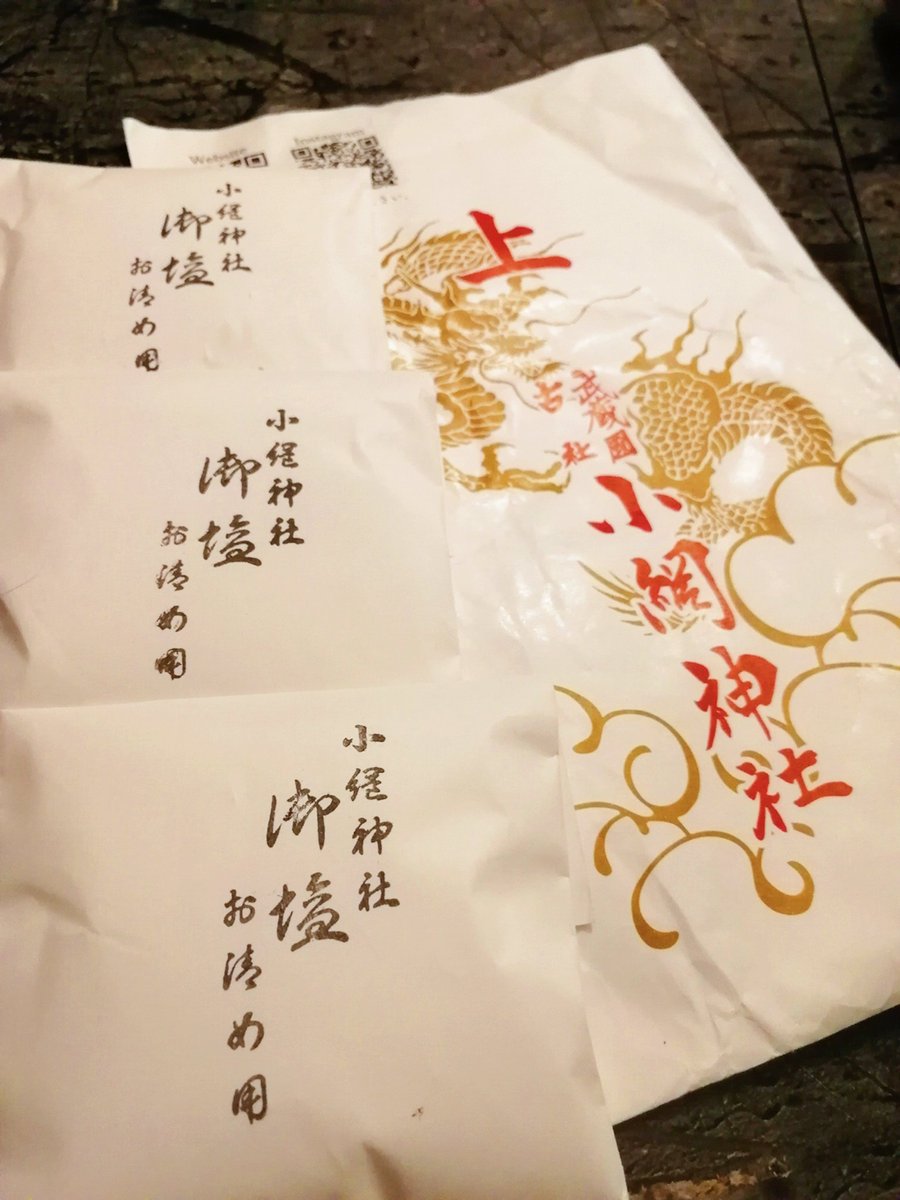 Website
Instagram
上
武蔵國
古社
小網神社
小網神社
御塩
お清め用
小網神社
御塩
お清め用
小網神社
御塩
お清め用